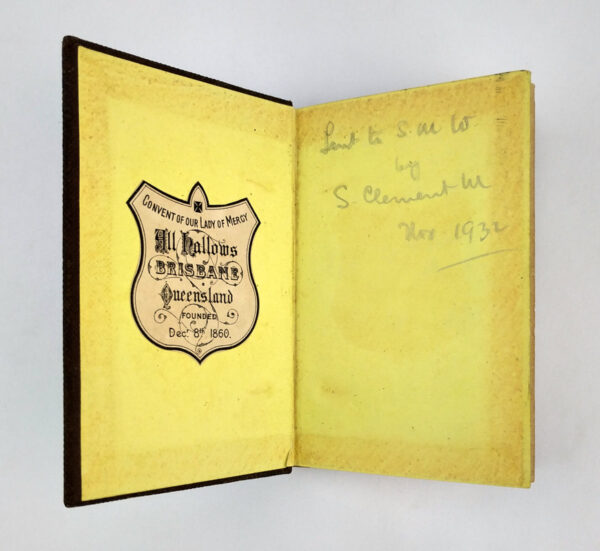 CONVENT OF OUR LADY OF MERCY
All Hallows
BRISBANE
Queensland
FOUNDED
Dec. 8th 1860.
Lent to S. M W
by
S. Clement M
Nov 1932